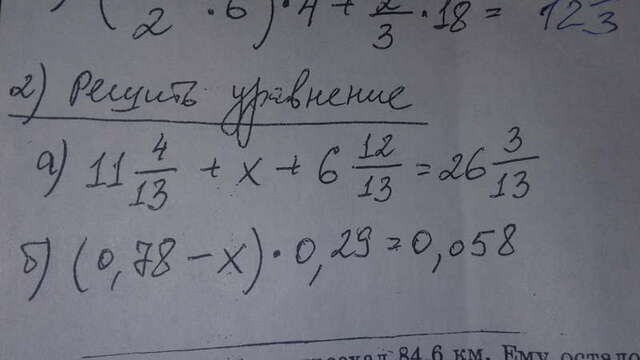 2 · 6) · 4 + · 18 =
2) Решить уравнение
а) 11 4/13 + x + 6 12/13 = 26 3/13
б) (0,78 − x) · 0,29 = 0,058
84,6 км. Ему